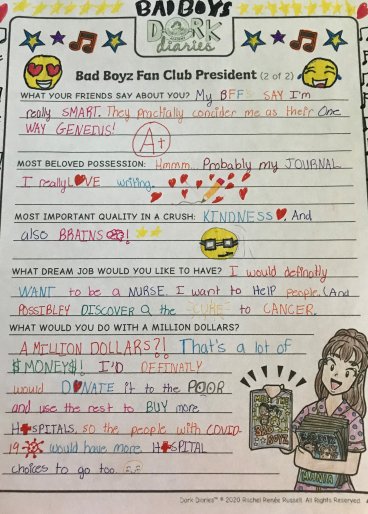 BAD BOYS
DORK
diaries
Bad Boyz Fan Club President (2 of 2)
WHAT YOUR FRIENDS SAY ABOUT YOU? My BFFS SAY I'm
really SMART. They practially consider me as their One
WAY GENEIUS!
A+
MOST BELOVED POSSESSION: Hmmm... Probably my JOURNAL
I really LOVE writing.
MOST IMPORTANT QUALITY IN A CRUSH: KINDNESS, And
also BRAINS!
WHAT DREAM JOB WOULD YOU LIKE TO HAVE? I would definatly
WANT to be a NURSE. I want to HelP people. (And
POSSIBLEY DISCOVER the CURE to CANCER.
WHAT WOULD YOU DO WITH A MILLION DOLLARS?
A MILLION DOLLARS?! That's a lot of
$MONEY$! I'D DEFFINATLY
would DONATE it to the POOR
and use the rest to BUY more
HOSPITALS, so the people with COVID-
19 would have more HOSPITAL
choices to go too.
BAD
BOYZ
MANIA
Dork Diaries™ © 2020 Rachel Renée Russell. All Rights Reserved.